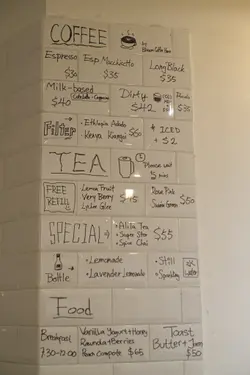 COFFEE
Espresso
$30
Esp. Macchiato
$35
Long Black
$35
Milk-based
$40
Dirty
$42
$35
Filter
• Ethiopia Adado
Kenya
$50
+ ICED
+ $2
TEA
Please wait
5 mins
FREE
REFILL
Lemon Fruit
Very Berry
Rose Pink
$50
SPECIAL
• Alita Tea
• Super Star
• Spice Chai
$55
Bottle
• Lemonade
• Lavender Lemonade
• Still
• Sparkling
Water
Food
Breakfast
7.30-12.00
Vanilla Yogurt + Honey
Peach Compote $65
Toast
Butter + Jam
$50